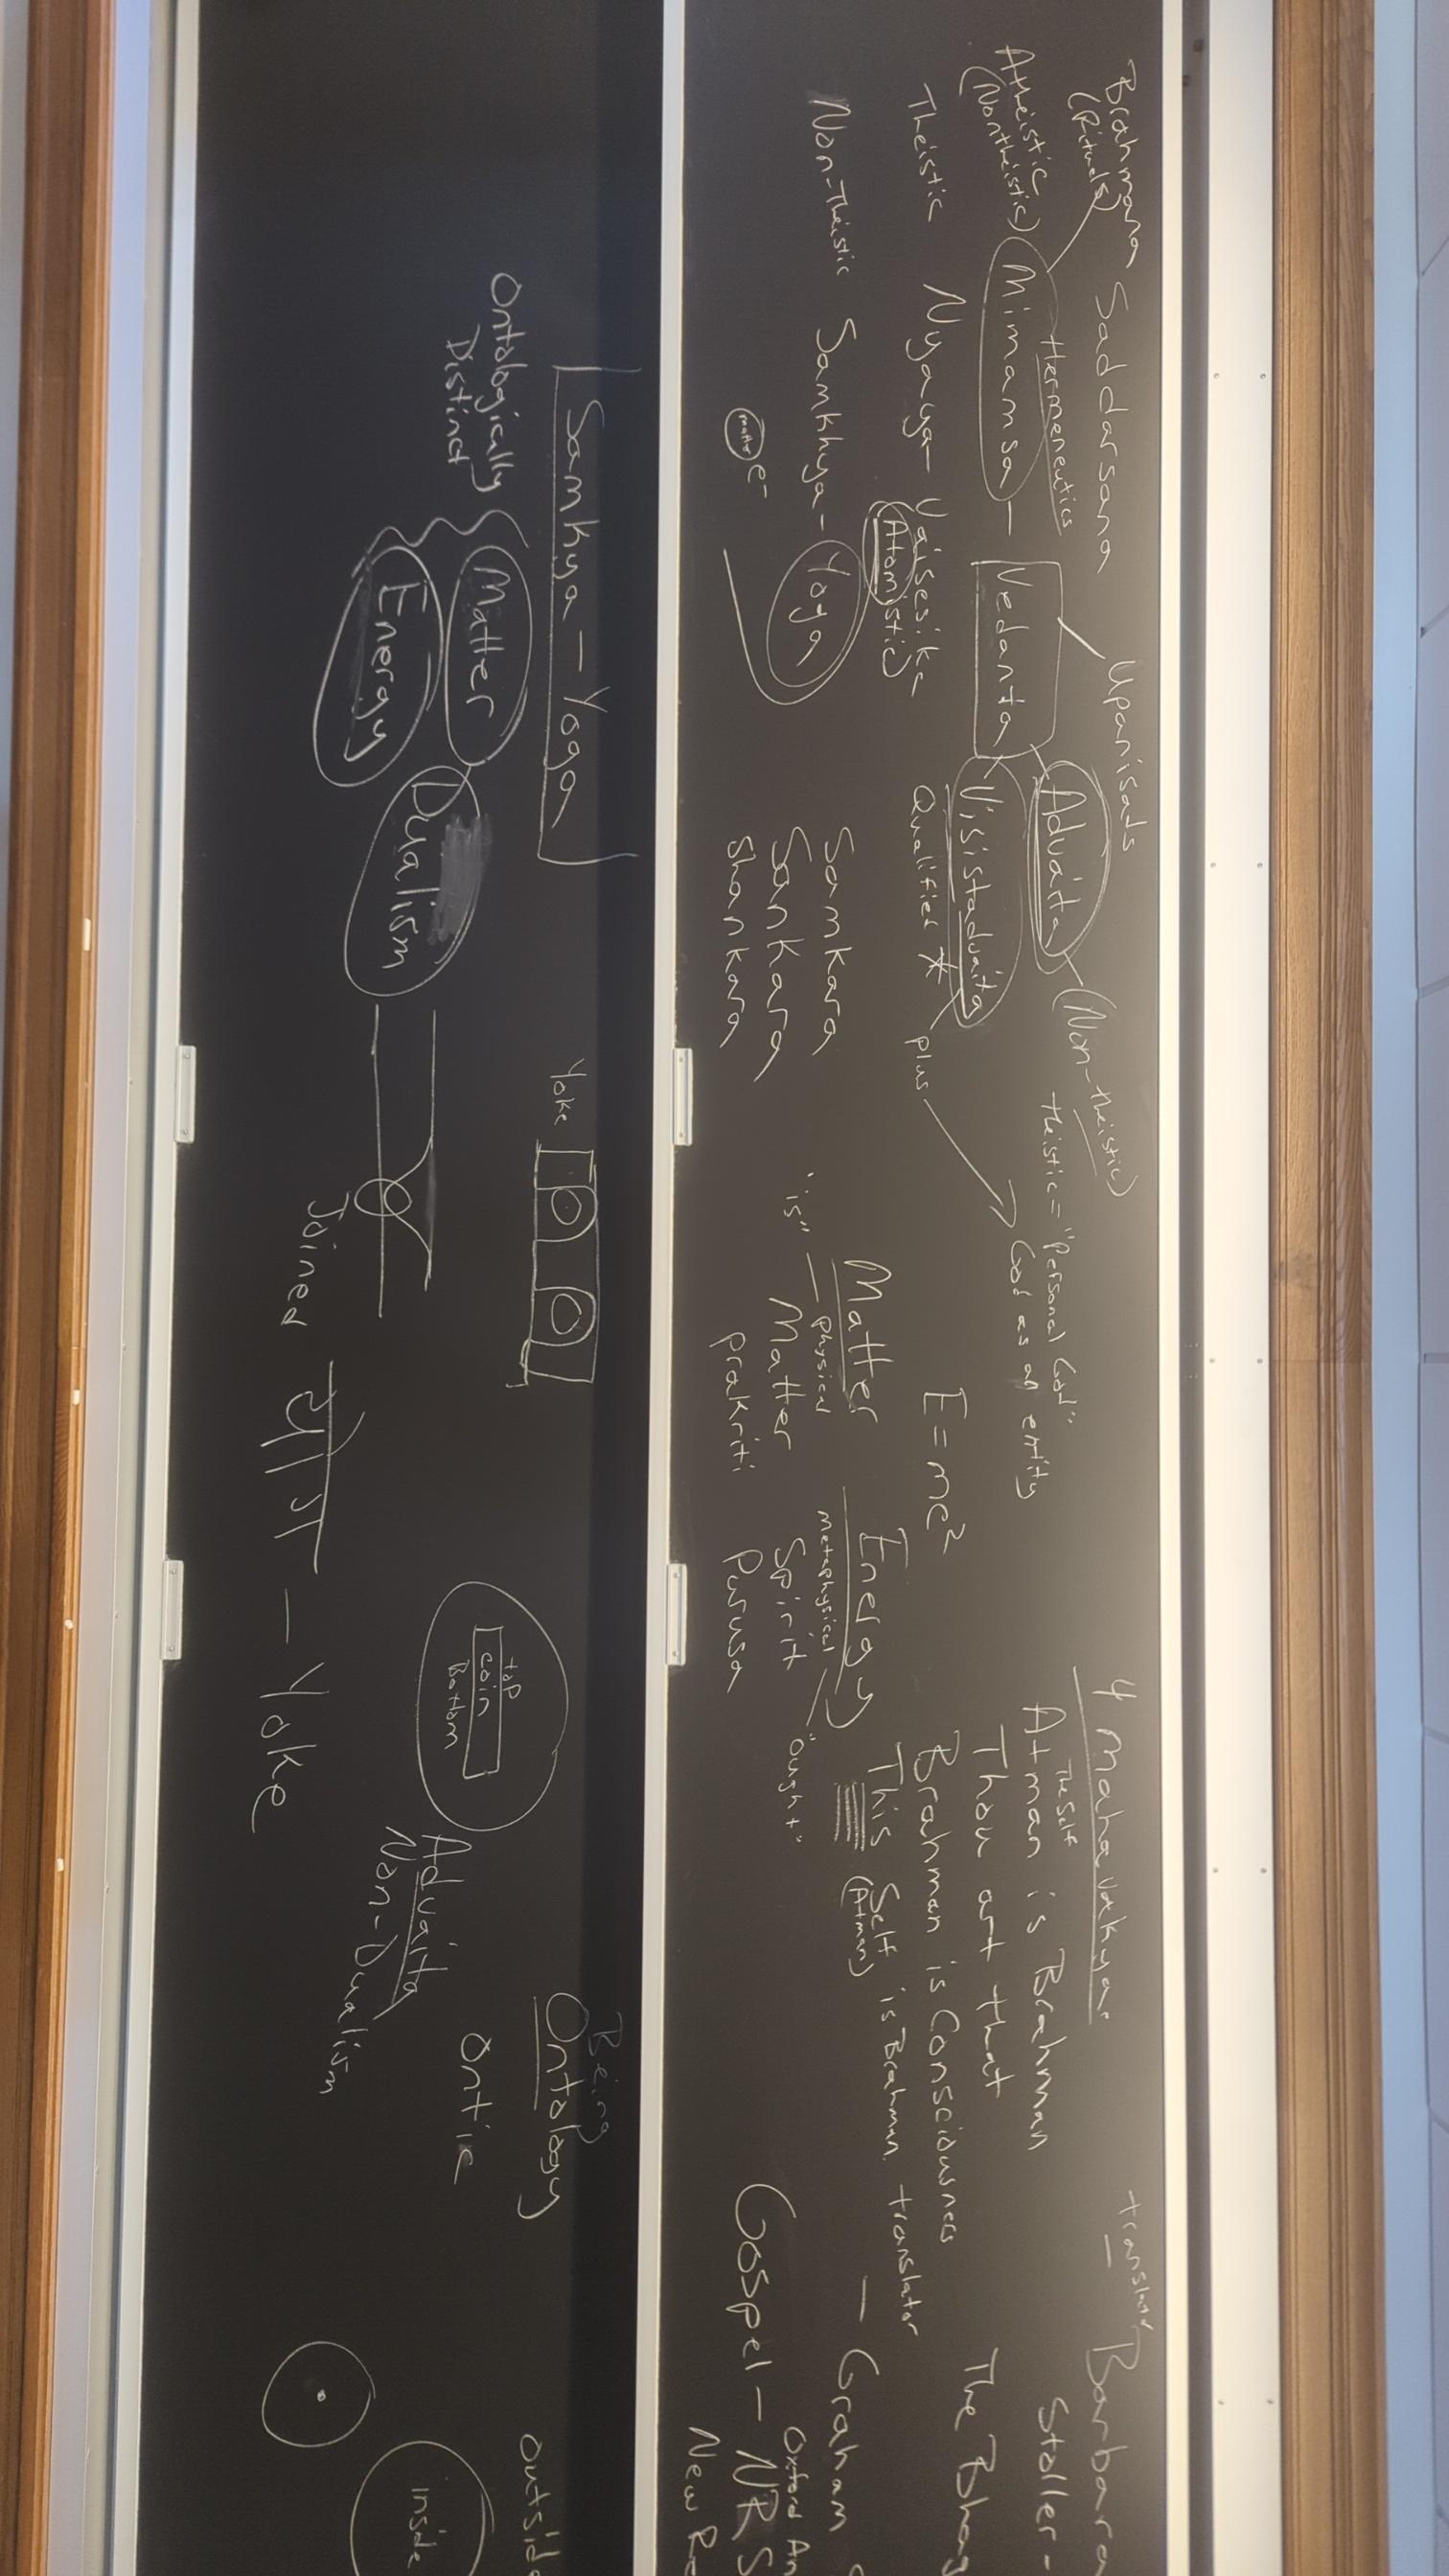 Brahmana
(Rituals)
Saddarsana
Upanisads
Hermeneutics
Atheistic
(Nontheistic)
Mimamsa – Vedanta
Advaita
(Non-theistic)
Visistadvaita
Qualified *
plus
theistic = "Personal God"
God as an entity
Theistic
Nyaya – Vaisesika
(Atomistic)
Non-Theistic
Samkhya – Yoga
matter e-
Samkara
Sankara
Shankara
E=mc²
Matter Energy
physical metaphysical
"is" "ought"
Matter Spirit
prakriti Purusa
4 Mahavakya
The Self
Atman is Brahman
Thou art that
Brahman is Consciousness
This Self is Brahman
(Atman)
translator
– Barbara
Stoller-
The Bhag
translator
– Graham
Oxford An
Gospel – NRS
New Re
Samkya – Yoga
Ontologically
Distinct
Matter
Energy
Dualism
Yoke
Joined
योग – Yoke
top
coin
Bottom
Advaita
Non-Dualism
Being
Ontology
Ontic
outside
inside